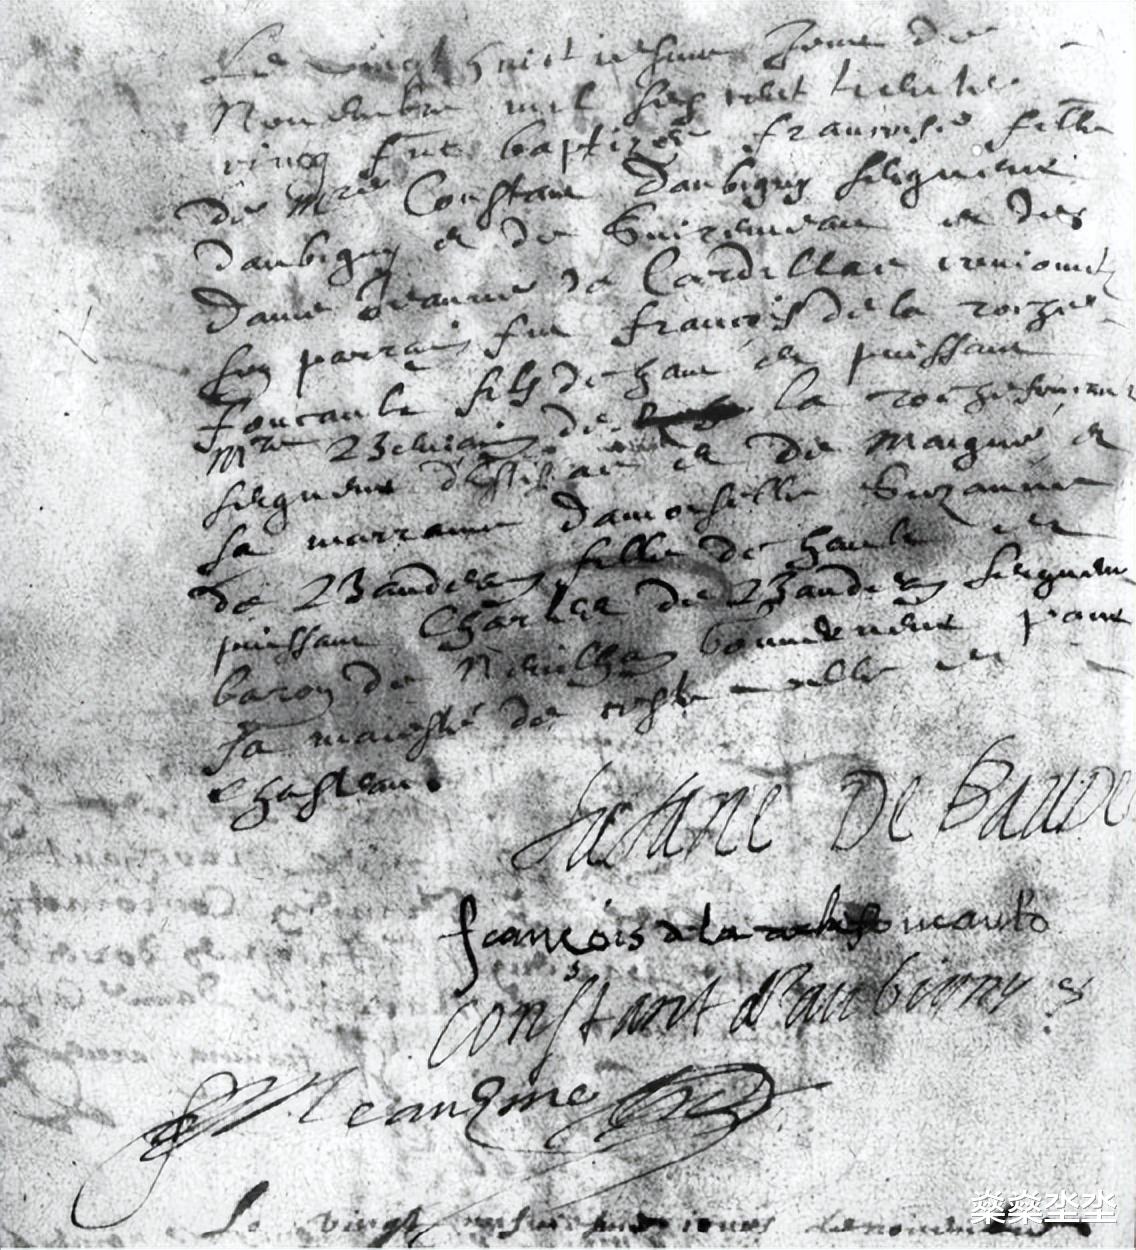 Le vingt huictiesme Jour de
Novembre mil six cent trente
cinq fut baptizée françoise fille
de Mre Constant Daubigny seigneur
daubigny et de Surimeau et de
dame Jeanne de Cardillac conioinctz
son parrain fut françois de la roche
foucault filz de hault et puissant
Mre Benjamin de la rochefoucault
seigneur destissac et de Maigné et
la marraine damoiselle Suzanne
de Baudean fille de hault et
puissant Charles de Baudean seigneur
baron de Neuillan gouverneur pour
sa maiesté de ceste ville et
chasteau.
susane De Baude
françois de la rochefoucauld
constant d'aubigny
Meaulme
Le vingt
燊燊坔坔